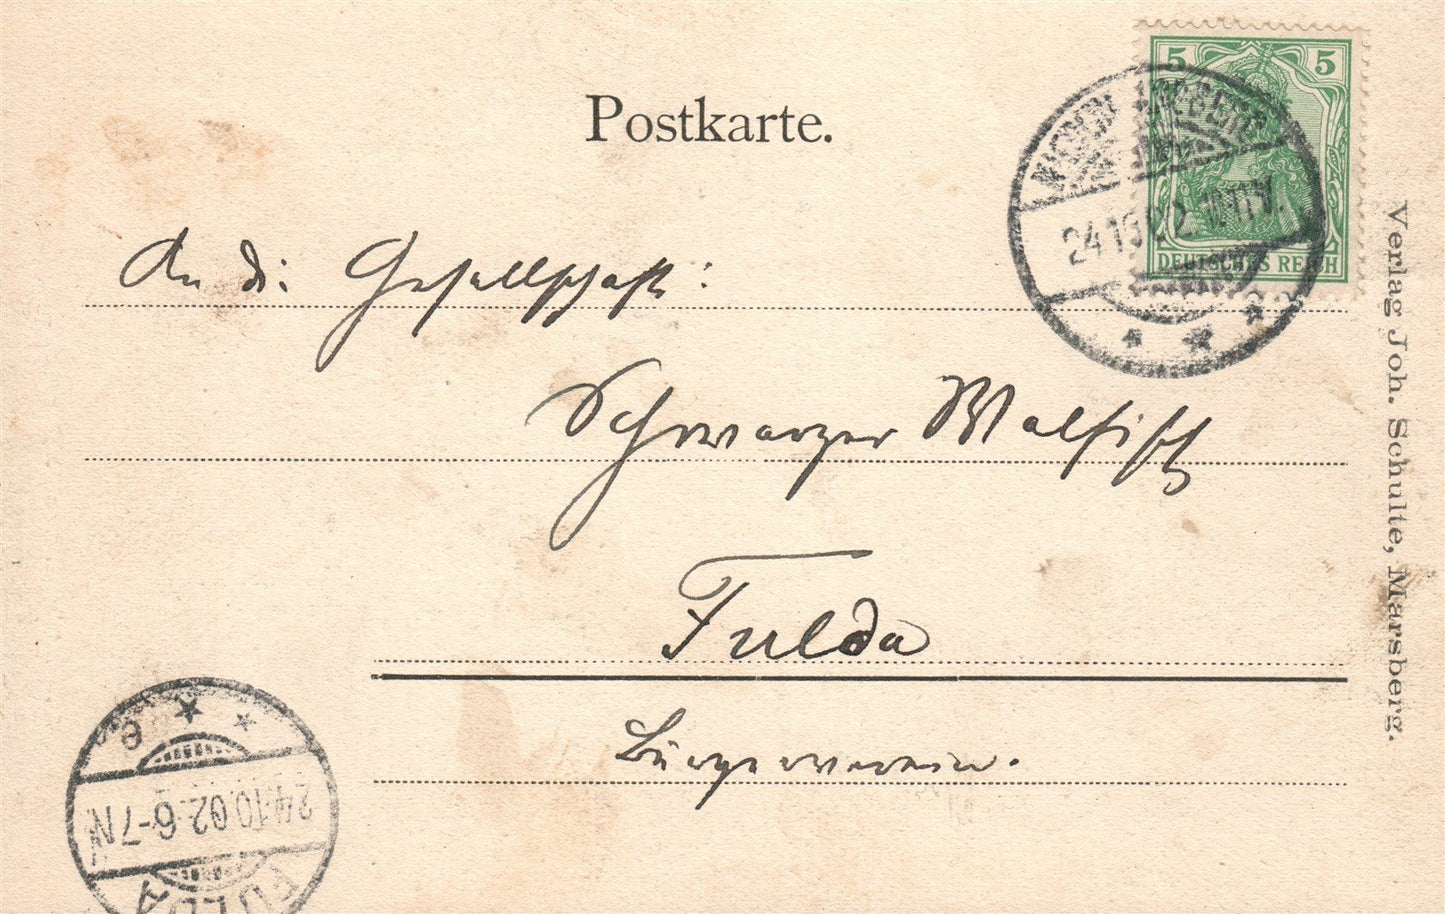 Postkarte.
5 5
DEUTSCHES REICH
NIEDERMARSBERG
24.10.02. 10-11 V.
An die Gesellschaft:
Schwarzer Walfisch
Fulda
Bürgerverein.
Verlag Joh. Schulte, Marsberg.
FULDA
24.10.02. 6-7 N
e